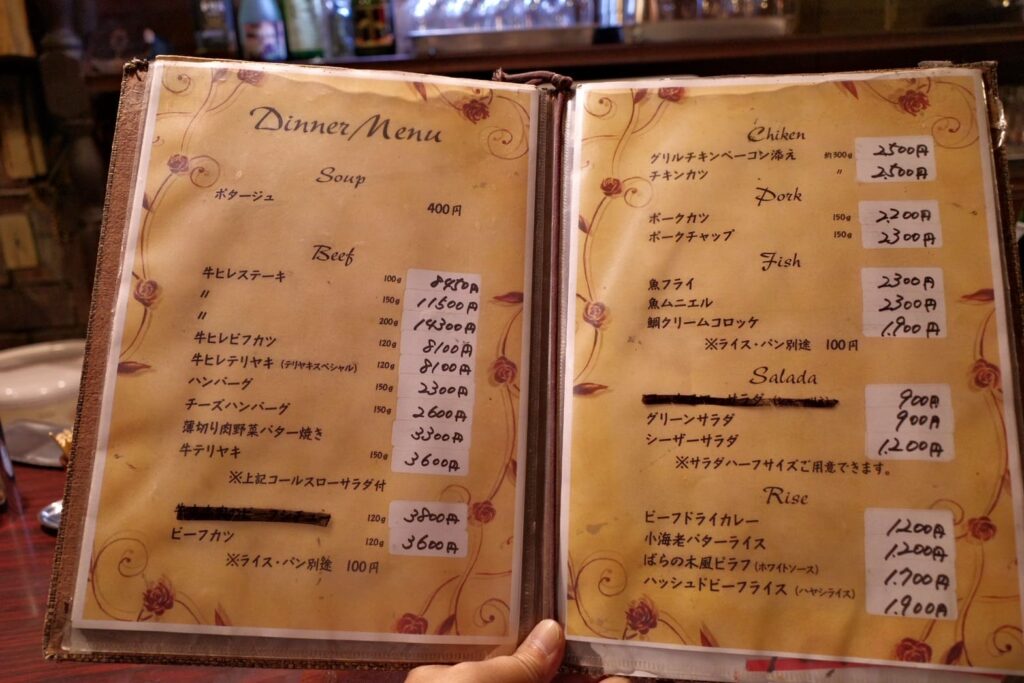 Dinner Menu
Soup
ポタージュ 400円
Beef
牛ヒレステーキ 100g 8450円
〃 150g 11500円
〃 200g 14300円
牛ヒレビフカツ 120g 8100円
牛ヒレテリヤキ (テリヤキスペシャル) 120g 8100円
ハンバーグ 150g 2300円
チーズハンバーグ 150g 2600円
薄切り肉野菜バター焼き 3300円
牛テリヤキ 150g 3600円
※上記コールスローサラダ付
120g 3800円
ビーフカツ 120g 3600円
※ライス・パン別途 100円
Chiken
グリルチキンベーコン添え 約300g 2500円
チキンカツ 〃 2500円
Pork
ポークカツ 150g 2200円
ポークチャップ 150g 2300円
Fish
魚フライ 2300円
魚ムニエル 2300円
鯛クリームコロッケ 1,900円
※ライス・パン別途 100円
Salada
サラダ 900円
グリーンサラダ 900円
シーザーサラダ 1,200円
※サラダハーフサイズご用意できます。
Rise
ビーフドライカレー 1200円
小海老バターライス 1,200円
ばらの木風ピラフ (ホワイトソース) 1,700円
ハッシュドビーフライス (ハヤシライス) 1,900円